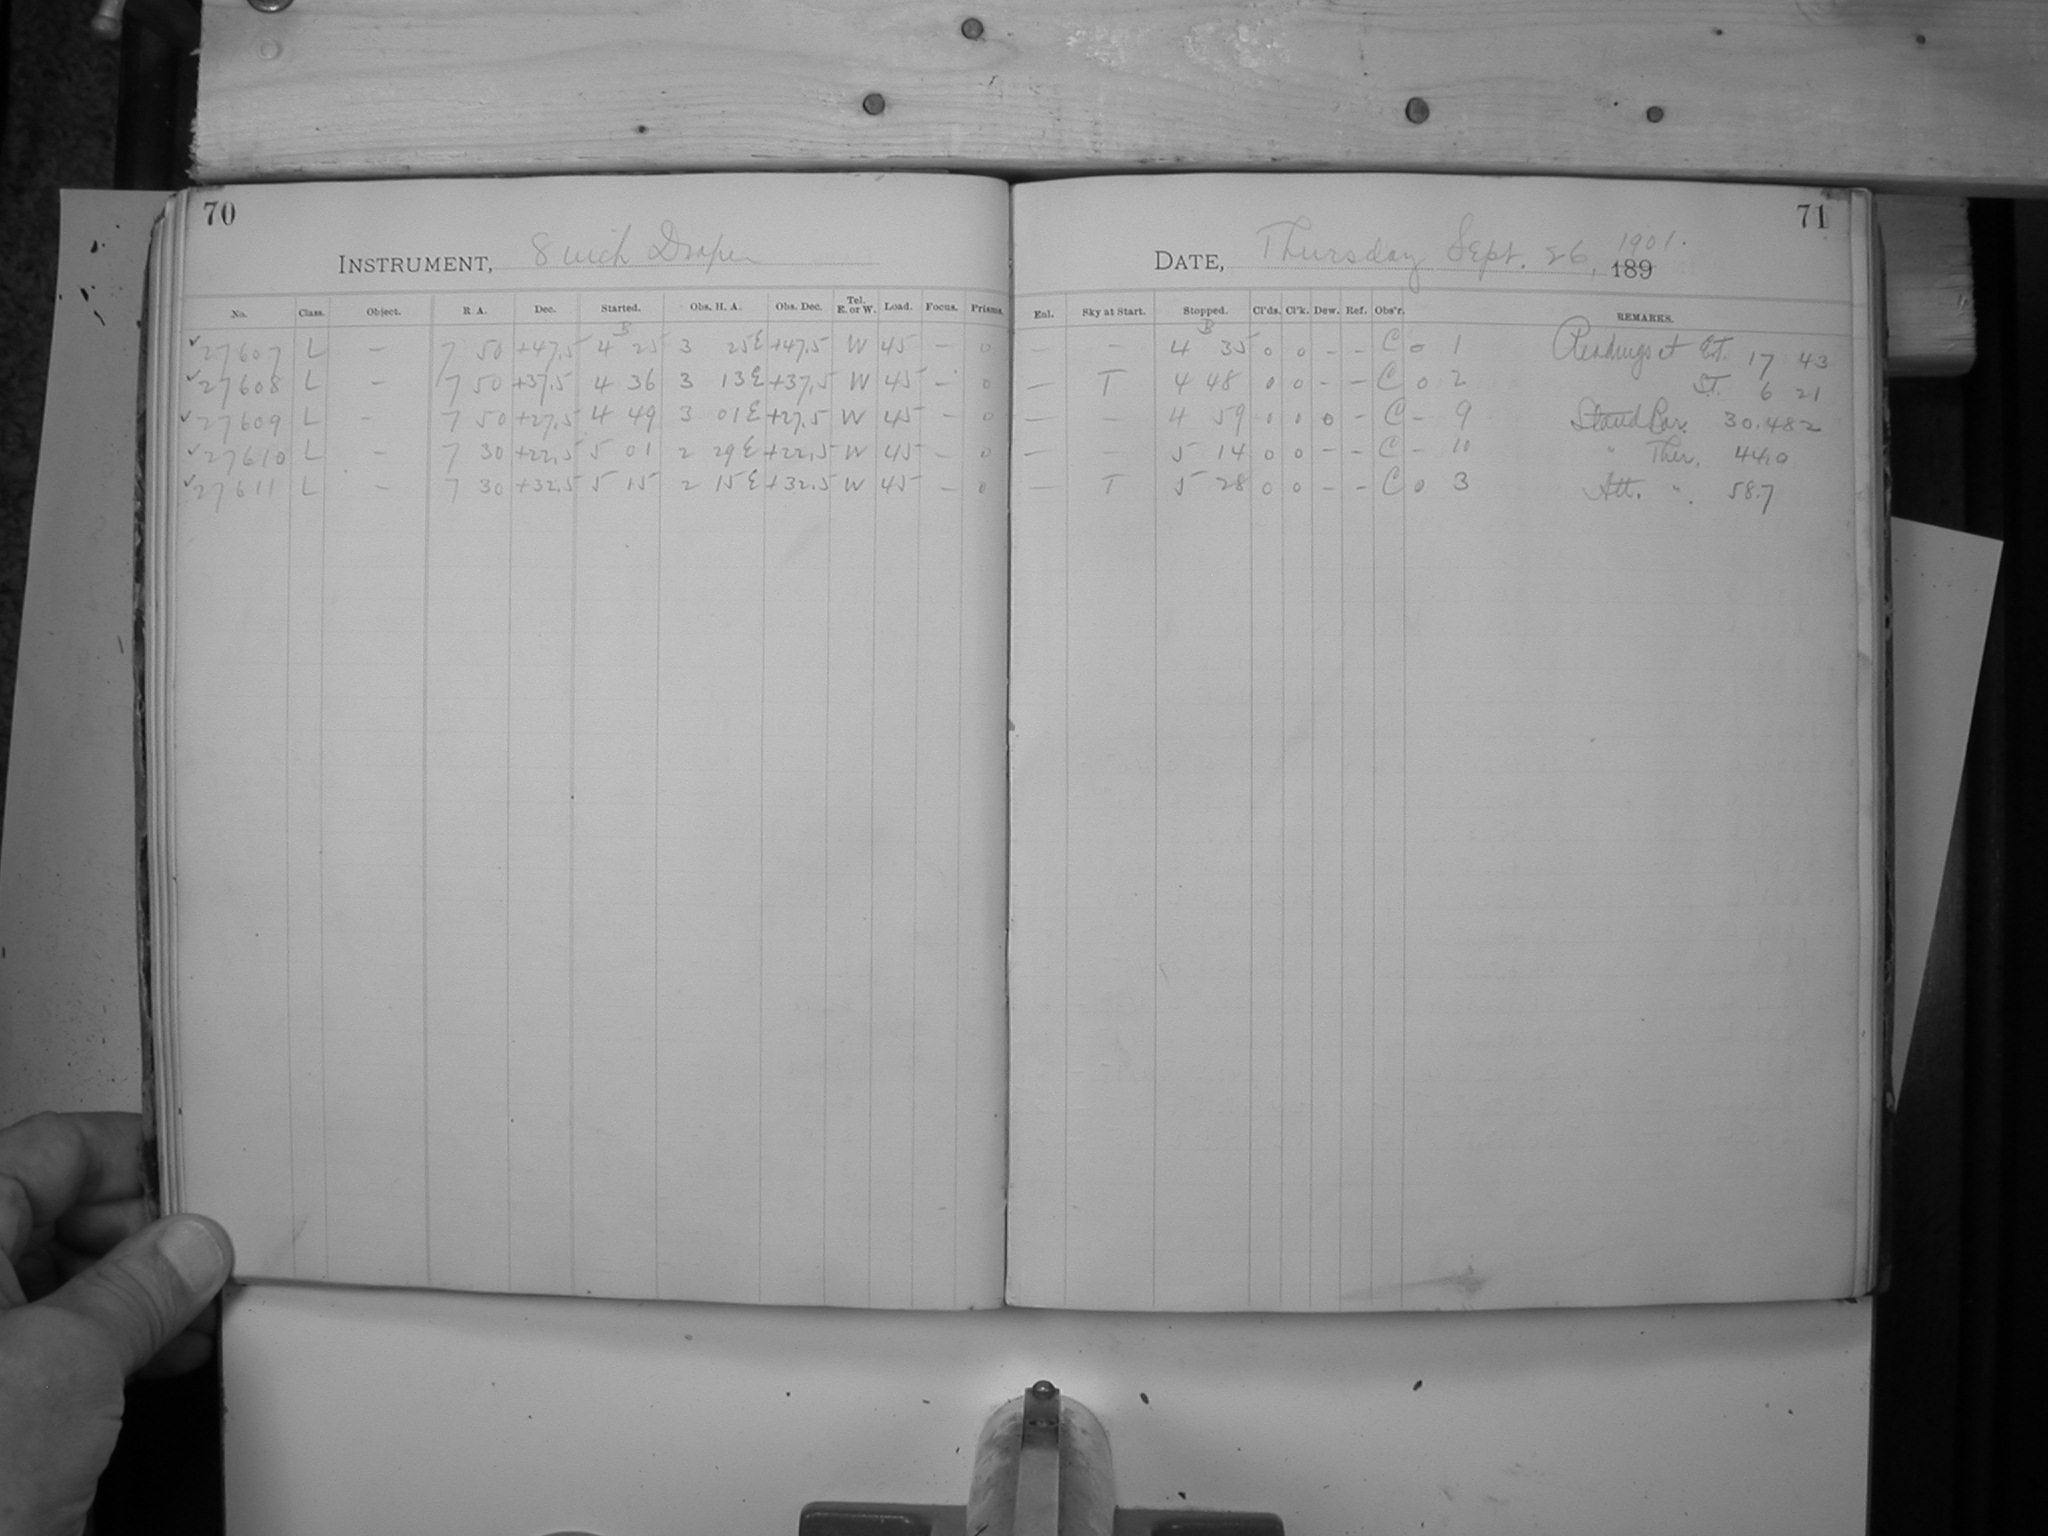 70
INSTRUMENT, 8 inch Draper
No. Class. Object. R. A. Dec. Started. Obs. H. A. Obs. Dec. Tel. E. or W. Load. Focus. Prisms.
B
✓27607 L – 7 50 +47.5 4 25 3 25E +47.5 W 45 – 0
✓27608 L – 7 50 +37.5 4 36 3 13E +37.5 W 45 – 0
✓27609 L – 7 50 +27.5 4 49 3 01E +27.5 W 45 – 0
✓27610 L – 7 30 +22.5 5 01 2 29E +22.5 W 45 – 0
✓27611 L – 7 30 +32.5 5 15 2 15E +32.5 W 45 – 0
71
DATE, Thursday Sept. 26, 1901. 189
Enl. Sky at Start. Stopped. Cl'ds. Cl'k. Dew. Ref. Obs'r. REMARKS.
B
– – 4 35 0 0 – – C 0 1 Readings at E.T. 17 43
– T 4 48 0 0 – – C 0 2 S.T. 6 21
– – 4 59 0 0 0 – C – 9 Stand Bar. 30.482
– – 5 14 0 0 – – C – 10 " Ther. 44.0
– T 5 28 0 0 – – C 0 3 Att. ". 58.7